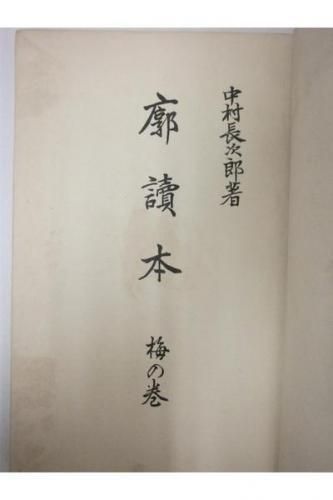 中村長次郎著
廓讀本
梅の巻